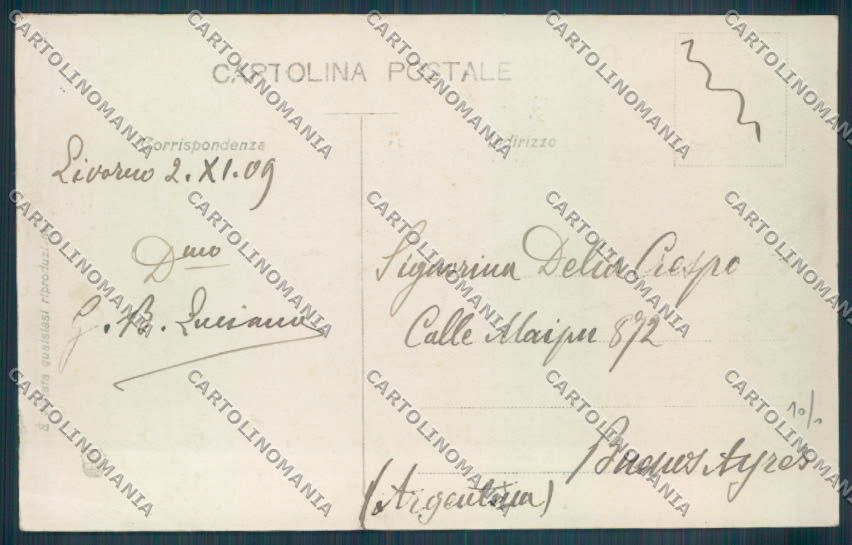 CARTOLINA POSTALE
Corrispondenza
Indirizzo
Livorno 2.XI.09
Dmo
G. B. Luciano
Signorina Delia Crespo
Calle Maipu 872
Buenos Ayres
(Argentina)
10/.
È vietata qualsiasi riproduzione
CARTOLINOMANIA